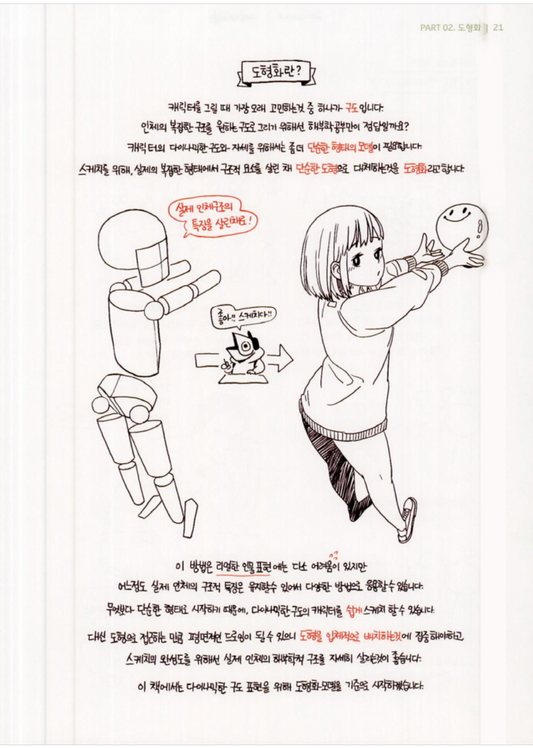 PART 02. 도형화 | 21
도형화란?
캐릭터를 그릴 때 가장 오래 고민하는것 중 하나가 구도입니다.
인체의 복잡한 구조를 원하는구도로 그리기 위해선 해부학공부만이 정답일까요?
캐릭터의 다이나믹한 구도와 자세를 위해서는 좀더 단순한 형태의 모델이 필요합니다.
스케치를 위해, 실제의 복잡한 형태에서 구조적 요소를 살린 채 단순한 도형으로 대체하는것을 도형화라고 합니다.
실제 인체구조의
특징을 살린채로!
좋아!! 스케치다!!
이 방법은 리얼한 인물 표현에는 다소 어려움이 있지만
어느정도 실제 인체의 구조적 특징은 유지할수 있어서 다양한 방법으로 응용할수 있습니다.
무엇보다 단순한 형태로 시작하기 때문에, 다이나믹한 구도의 캐릭터를 쉽게 스케치 할 수 있습니다.
대신 도형으로 접근하는 만큼 평면적인 드로잉이 될 수 있으니 도형을 입체적으로 배치하는것에 집중해야하고,
스케치의 완성도를 위해선 실제 인체의 해부학적 구조를 자세히 살리는것이 좋습니다.
이 책에서는 다이나믹한 구도 표현을 위해 도형화 모델을 기준으로 시작하겠습니다.